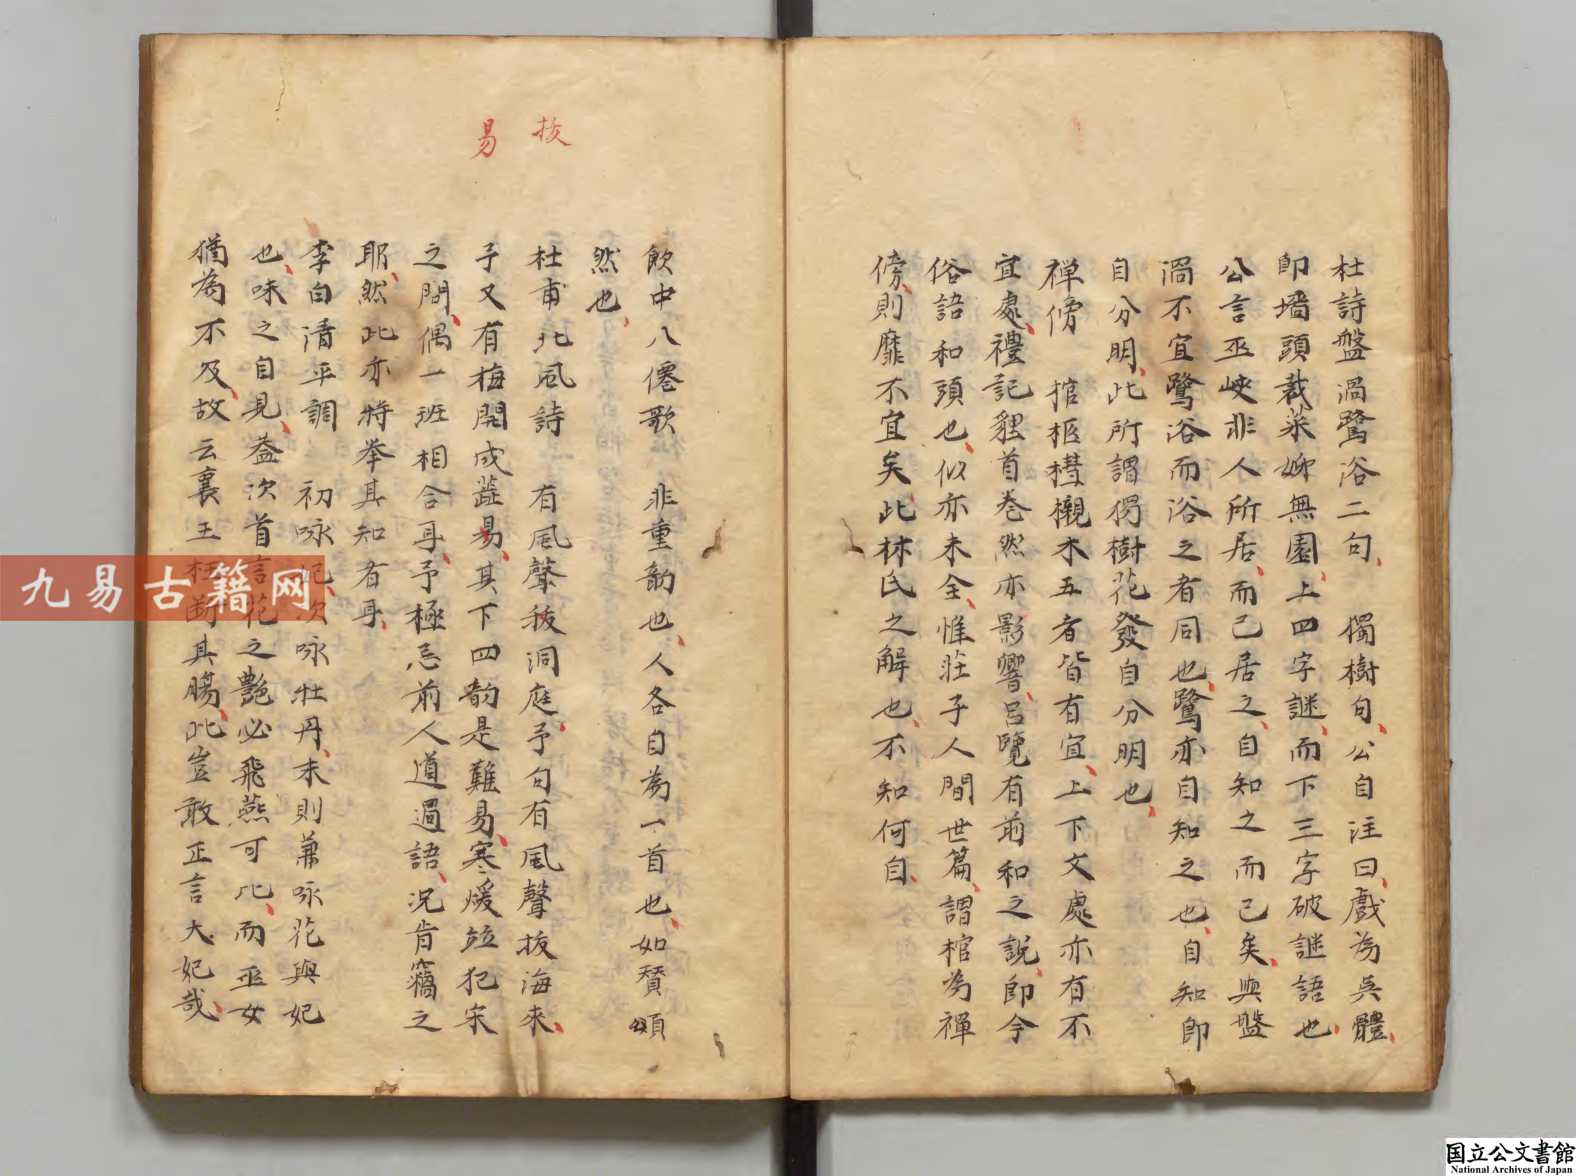 杜詩盤渦鷺浴二句　獨樹句公自注曰戲為吳體
即墻頭栽菜姉無園上四字謎而下三字破謎語也
公言巫峽非人所居而己居之自知之而已矣與盤
渦不宜鷺浴而浴之者同也鷺亦自知之也自知即
自分明此所謂獨樹花發自分明也
禅傍　棺柩槥櫬木五者皆有宜上下文處亦有不
宜處禮記貍首巻然亦影響呂覽有前和之說即今
俗語和頭也似亦未全惟莊子人間世篇謂棺為禅
傍則靡不宜矣此林氏之解也不知何自
飲中八僊歌　非重韵也人各自為一首也如賛頌
然也
杜甫北風詩　有風聲䅃洞庭予句有風聲拔海來
予又有梅開成蕋易其下四韵是難易寒煖竝犯宋
之問偶一班相合耳予極忌前人道過語况肯竊之
耶然此亦將举其知者耳
李白清平調　初咏妃次咏牡丹末則兼咏花與妃
也味之自見蓋次首言花之艶必飛燕可比而巫女
猶為不及故云襄王枉断其腸此豈敢正言大妃哉
拔
易
九易古籍网
国立公文書館
National Archives of Japan